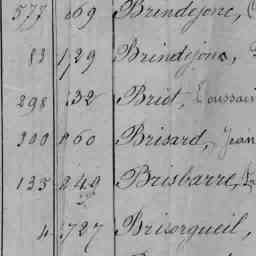 577 869 Brindejonc, (
83 129 Brindejonc,
298 132 Briot, Toussain
300 860 Brisard, Jean
135 249 Brisbarre,
4 727 Brisorgueil,